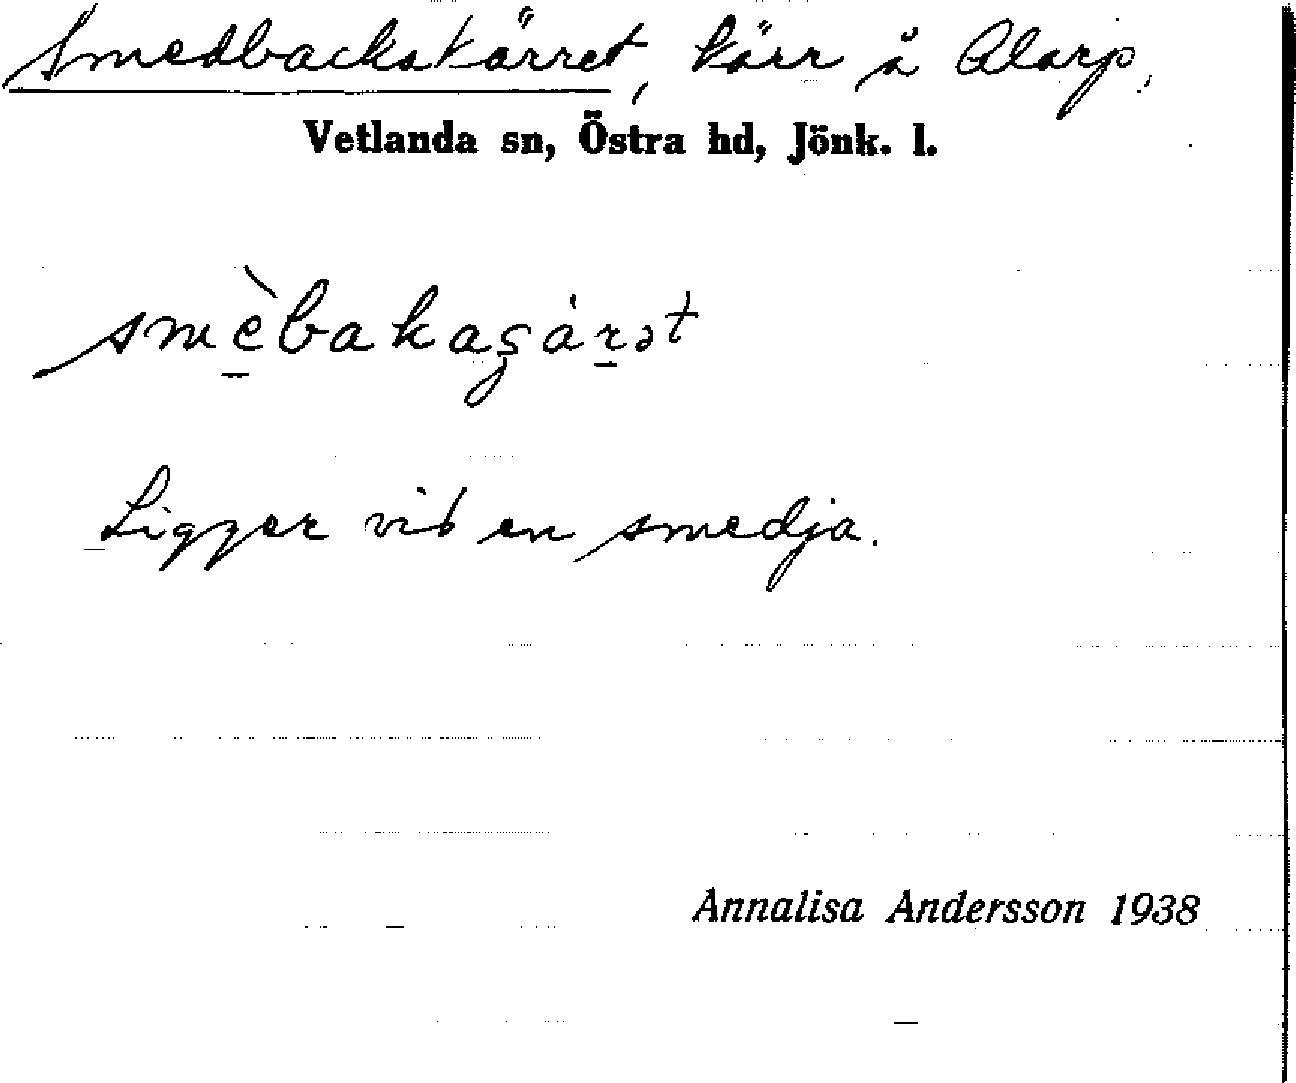 Smedbackakärret, kärr å Alarp.
Vetlanda sn, Östra hd, Jönk. l.
Ligger vid en smedja.
Annalisa Andersson 1938